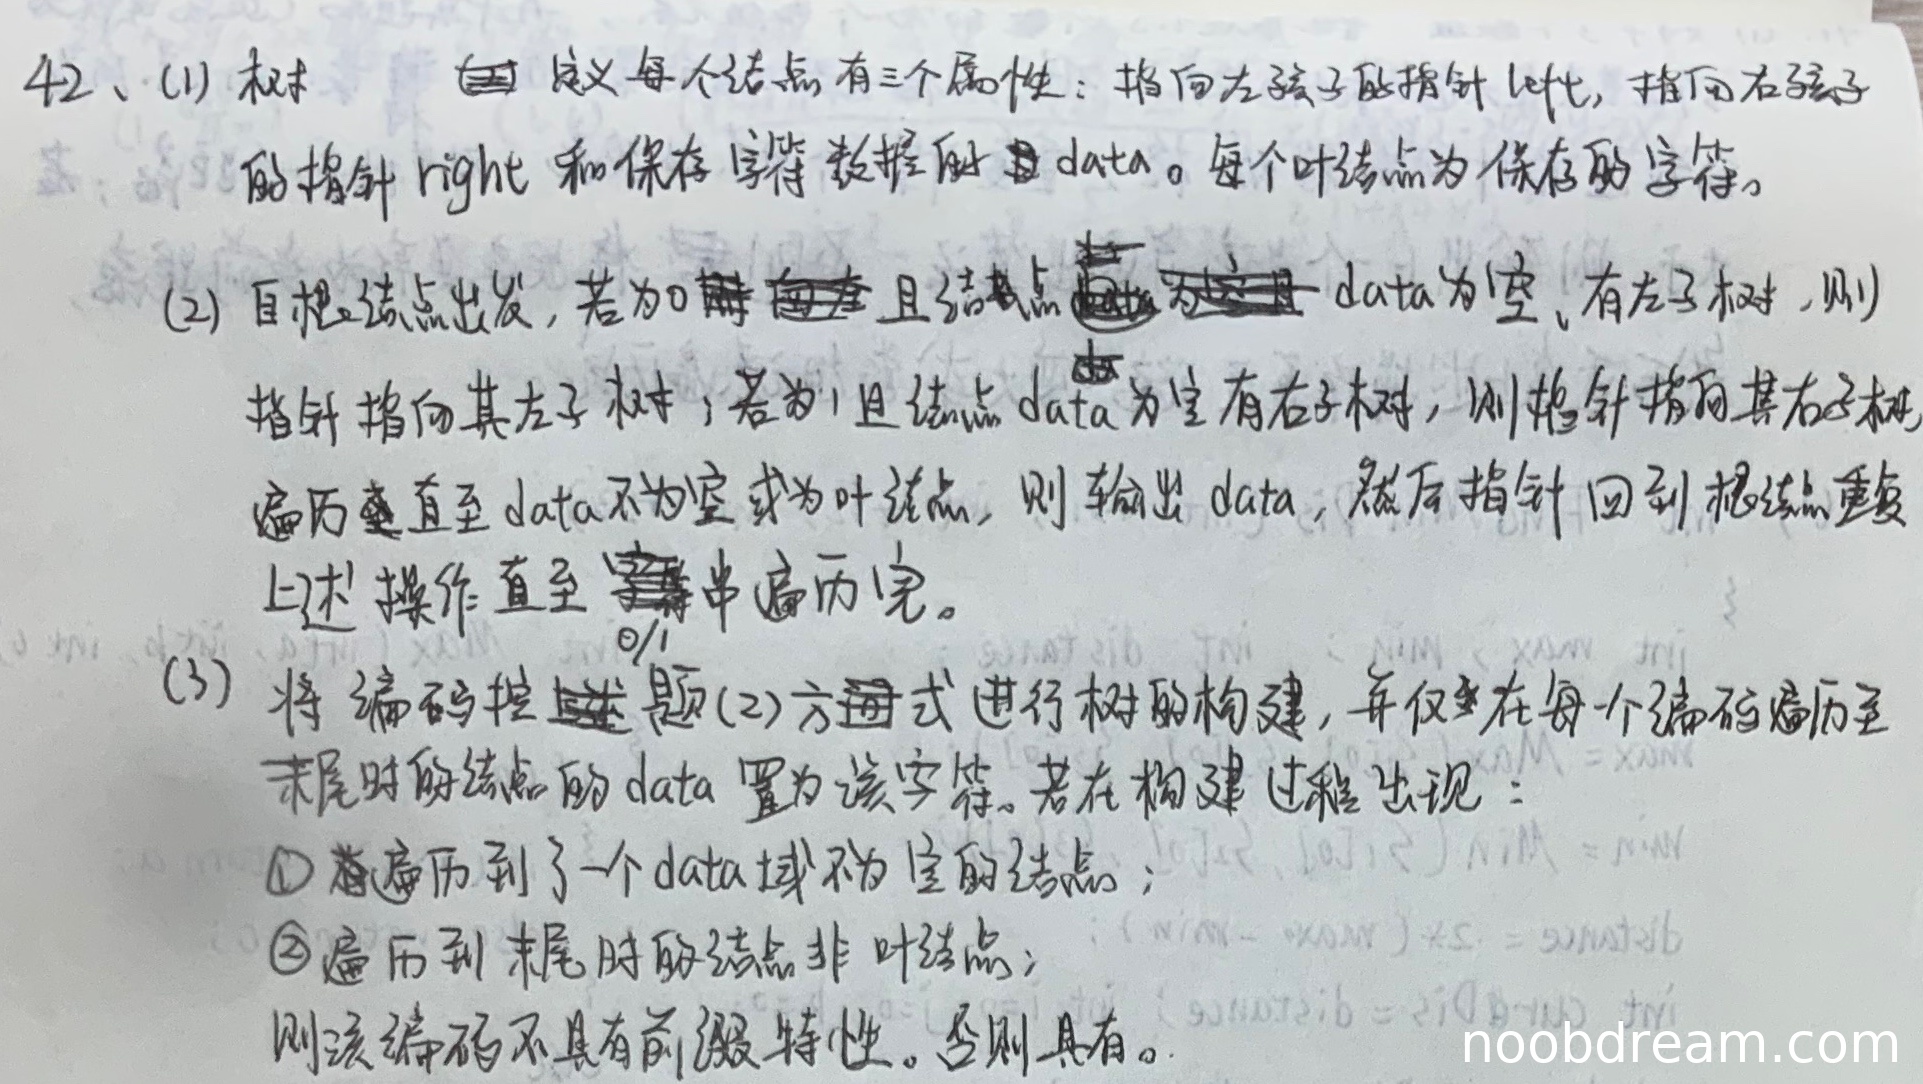 42、(1) 树 定义每个结点有三个属性：指向左孩子的指针 left，指向右孩子
的指针 right 和保存字符数据的 data。每个叶结点为保存的字符。
(2) 自根结点出发，若为0 且结点 data为空、有左子树，则
指针指向其左子树；若为1且结点 data 为空有右子树，则指针指向其右子树，
遍历直至 data不为空或为叶结点，则输出 data，然后指针回到根结点重复
上述操作直至 0/1 串遍历完。
(3) 将编码按题(2)方式进行树的构建，并仅在每一个编码遍历至
末尾时的结点的 data 置为该字符。若在构建过程出现：
① 遍历到了一个data域不为空的结点；
② 遍历到末尾时的结点非叶结点；
则该编码不具有前缀特性。否则具有。
noobdream.com